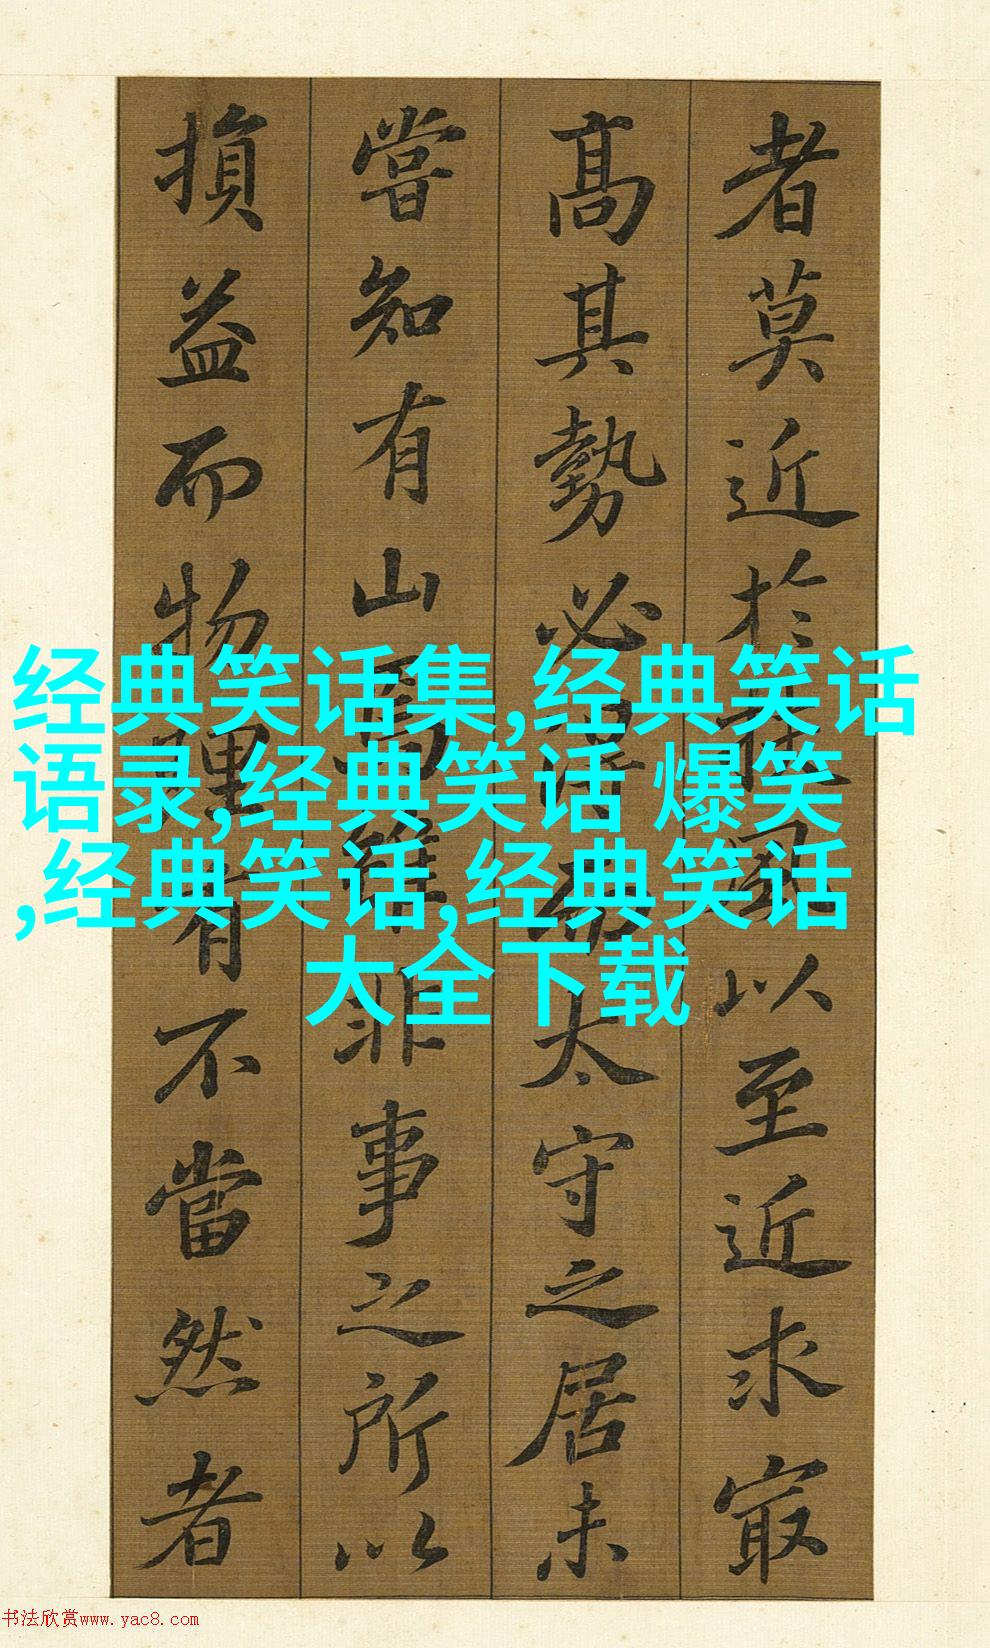 者莫近於扶風以至近求最
高其勢必得而太守之居未
嘗知有山焉雖非事之所以
損益而物理有不當然者
经典笑话集,经典笑话
语录,经典笑话 爆笑
,经典笑话,经典笑话
大全下载
书法欣赏www.yac8.com